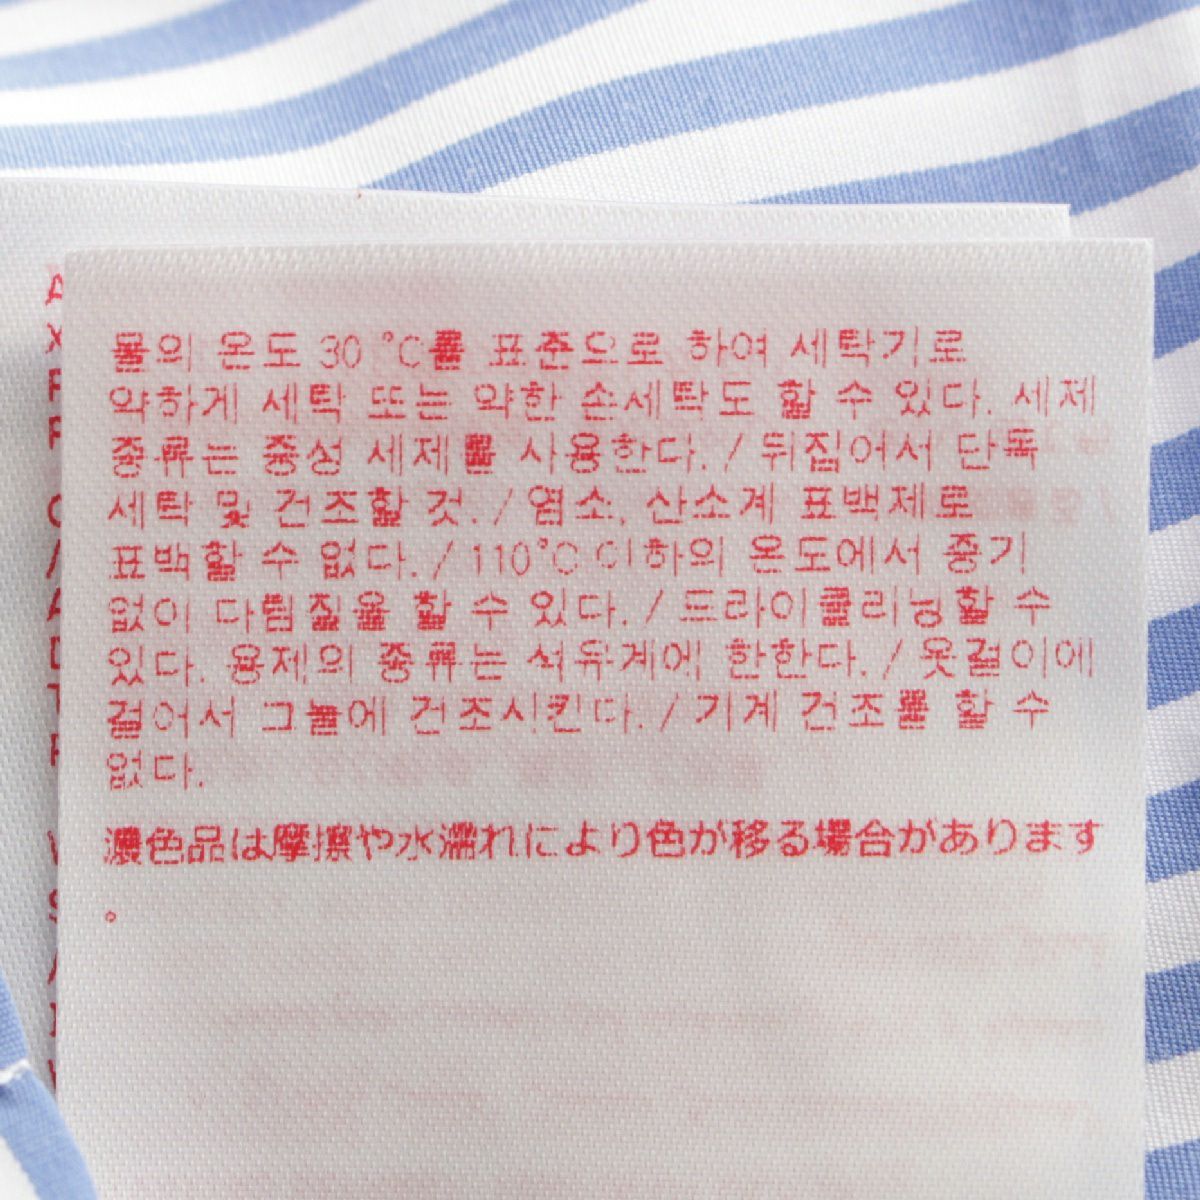 물의 온도 30 °C를 표준으로 하여 세탁기로
약하게 세탁 또는 약한 손세탁도 할 수 있다. 세제
종류는 중성 세제를 사용한다. / 뒤집어서 단독
세탁 및 건조할 것. / 염소, 산소계 표백제로
표백할 수 없다. / 110°C 이하의 온도에서 증기
없이 다림질을 할 수 있다. / 드라이클리닝할 수
있다. 용제의 종류는 석유계에 한한다. / 옷걸이에
걸어서 그늘에 건조시킨다. / 기계 건조를 할 수
없다.
濃色品は摩擦や水濡れにより色が移る場合があります
。